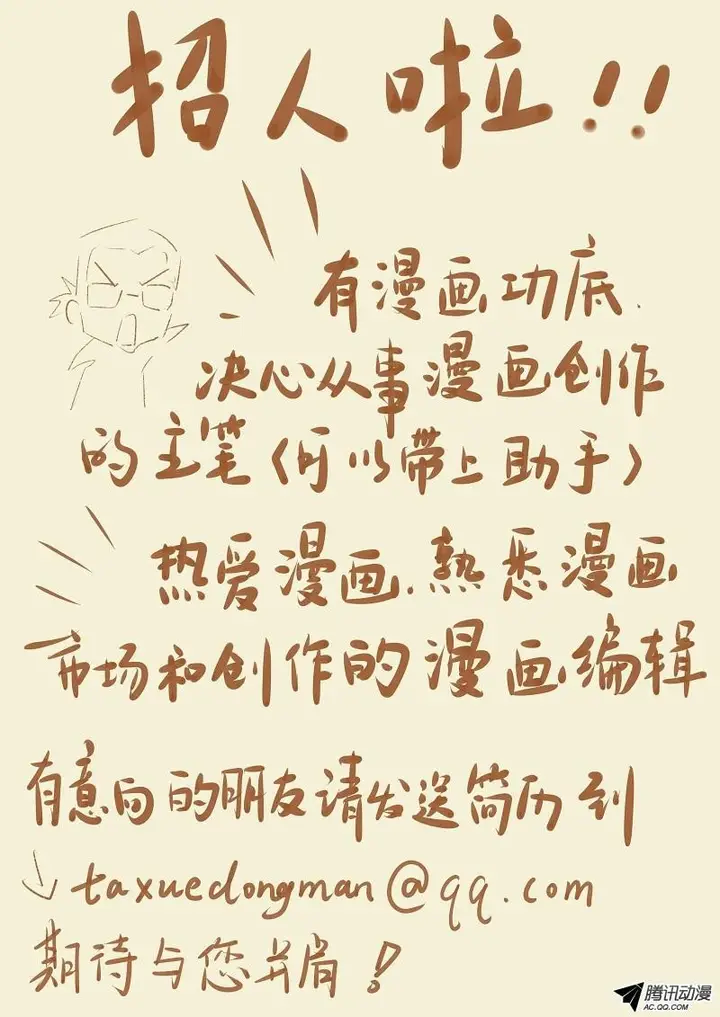 招人啦!!
有漫画功底、
决心从事漫画创作
的主笔(可以带上助手)
热爱漫画、熟悉漫画
市场和创作的漫画编辑
有意向的朋友请发送简历到
↓taxuedongman@qq.com
期待与您并肩!
腾讯动漫
AC.QQ.COM